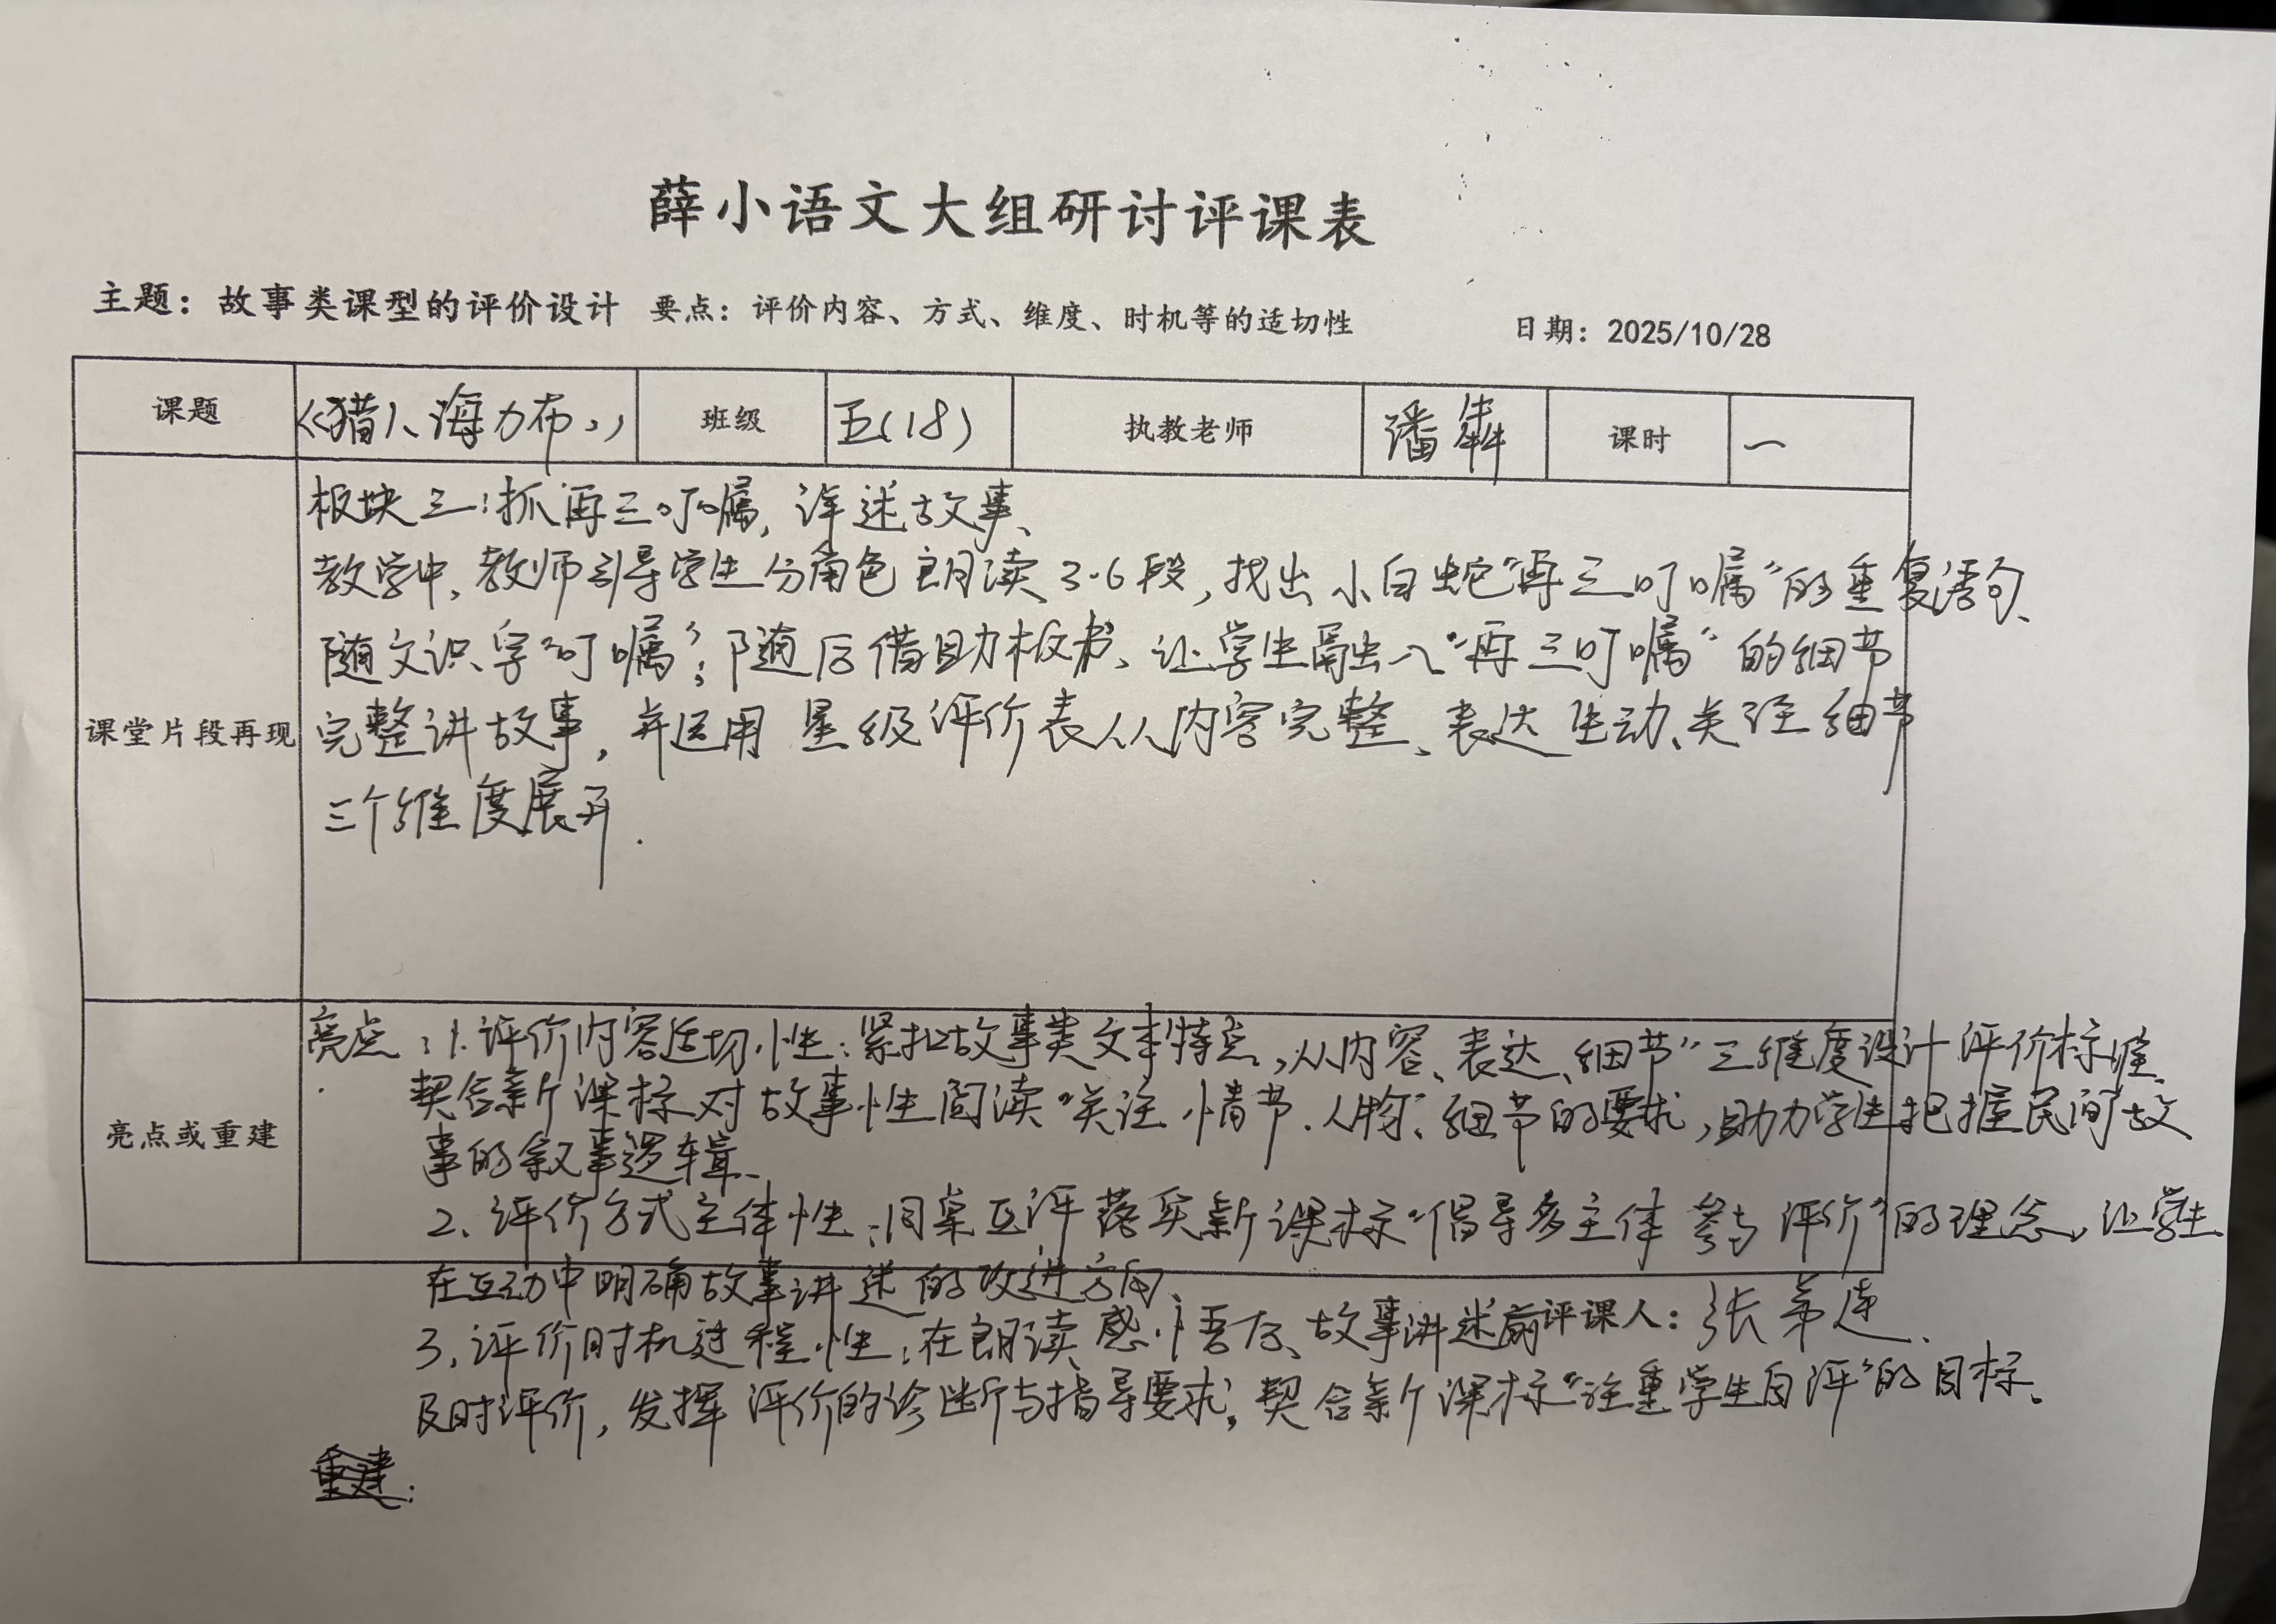 薛小语文大组研讨评课表
主题：故事类课型的评价设计 要点：评价内容、方式、维度、时机等的适切性 日期：2025/10/28
课题 《猎人海力布》 班级 五(18) 执教老师 潘犇 课时 一
课堂片段再现
板块三：抓再三叮嘱，详述故事、
教学中，教师引导学生分角色朗读3-6段，找出小白蛇“再三叮嘱”的重复语句、
随文识字“叮嘱”；随后借助板书、让学生融入“再三叮嘱”的细节
完整讲故事，并运用星级评价表从内容完整、表达生动、关注细节
三个维度展开.
亮点或重建
亮点：1.评价内容适切性：紧扣故事类文本特点，从内容、表达、细节”三维度设计评价标准、
契合新课标对故事性阅读“关注情节.人物、细节的要求，助力学生把握民间故
事的叙事逻辑、
2、评价方式主体性：同桌互评落实新课标“倡导多主体参与评价”的理念，让学生
在互动中明确故事讲述的改进方向、
3、评价时机过程性：在朗读感悟后、故事讲述前
评课人：张 莲
及时评价，发挥评价的诊断与指导要求，契合新课标“注重学生自评”的目标。
重建：